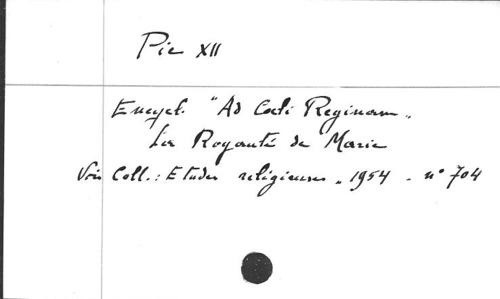 Pie XII
Encycl. "Ad Cœli Reginam"
La Royauté de Marie
Voir Coll.: Etudes religieuses, 1954 - n° 704